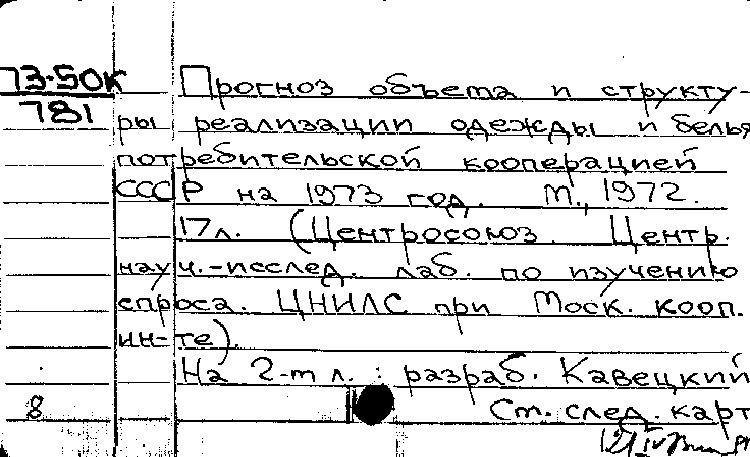 73-50К
781
Прогноз объема и структу-
ры реализации одежды и белья
потребительской кооперацией
СССР на 1973 год. М., 1972.
17л. (Центросоюз. Центр.
науч.-исслед. лаб. по изучению
спроса. ЦНИЛС при Моск. кооп.
ин-те).
На 2-т л.: разраб. Кавецкий
8
Ст. след. карт